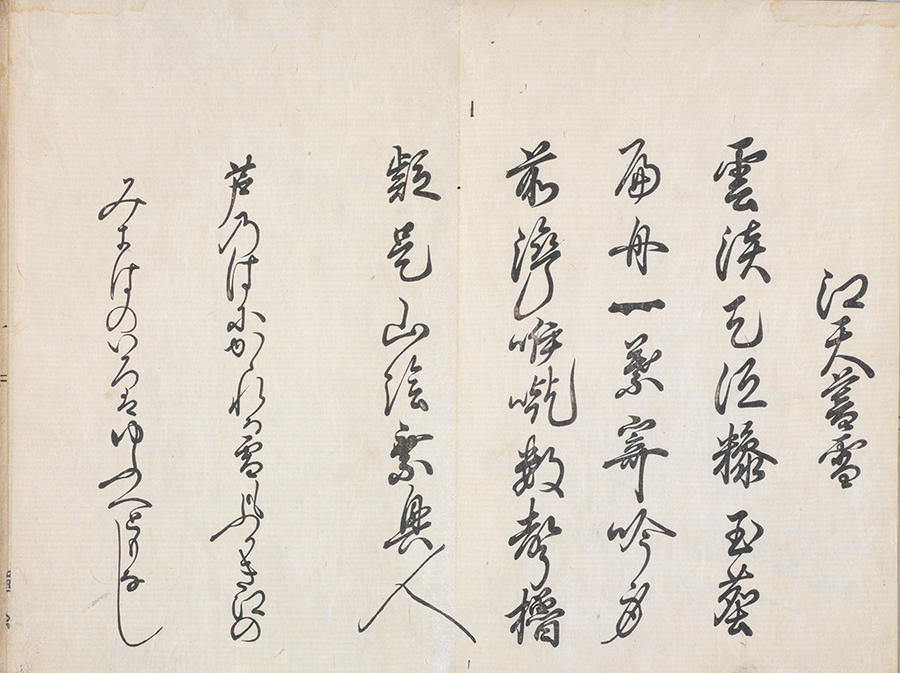 江天暮雪
雲淡天低糝玉塵
扁舟一葉寄吟身
前灣數聲櫓
疑是山陰乗興人
芦乃はにかゝれる雪もふかき江の
みきはのいろはゆふへともなし